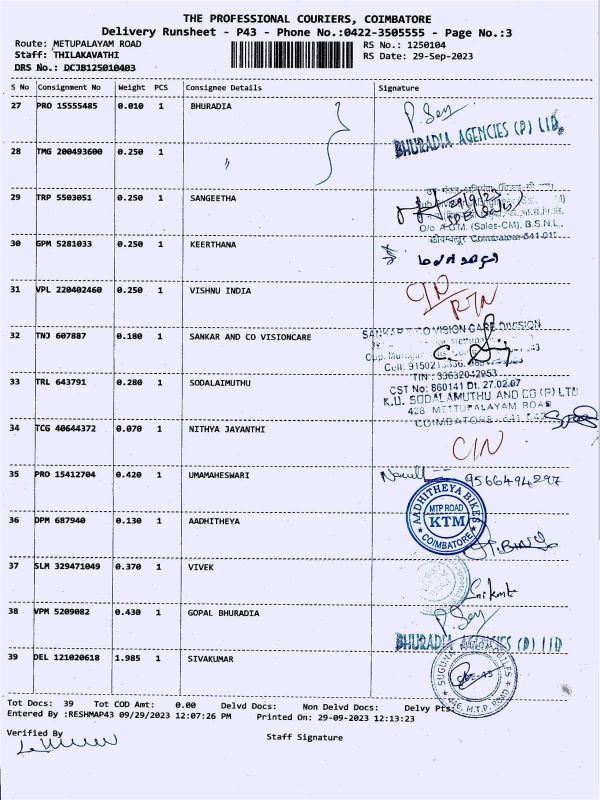 THE PROFESSIONAL COURIERS, COIMBATORE
Delivery Runsheet - P43 - Phone No.:0422-3505555 - Page No.:3
Route: METUPALAYAM ROAD
RS No.: 1250104
Staff: THILAKAVATHI
RS Date: 29-Sep-2023
DRS No.: DCJB125010403
S No Consignment No Weight PCS Consignee Details Signature
27 PRO 15555485 0.010 1 BHURADIA
BHURADIA AGENCIES (P) LTD.
28 TMG 200493600 0.250 1 〃
29 TRP 5503051 0.250 1 SANGEETHA
29/9/23
O/o A.G.M. (Sales-CM), B.S.N.L.,
30 GPM 5281033 0.250 1 KEERTHANA
31 VPL 220402460 0.250 1 VISHNU INDIA
32 TNJ 607887 0.180 1 SANKAR AND CO VISIONCARE
VISION CARE DIVISION
TIN: 33632042953
33 TRL 643791 0.280 1 SODALAIMUTHU
CST No: 860141 Dt. 27.02.07
K.U. SODALAMUTHU AND CO (P) LTD
428 METTUPALAYAM ROAD
COIMBATORE
34 TCG 40644372 0.070 1 NITHYA JAYANTHI
35 PRO 15412704 0.420 1 UMAMAHESWARI
9566494297
36 DPM 687940 0.130 1 AADHITHEYA
AADHITHEYA BIKES
MTP ROAD
KTM
COIMBATORE
37 SLM 329471049 0.370 1 VIVEK
38 VPM 5209082 0.430 1 GOPAL BHURADIA
BHURADIA AGENCIES (P) LTD
39 DEL 121020618 1.985 1 SIVAKUMAR
M.T.P. ROAD
Tot Docs: 39 Tot COD Amt: 0.00 Delvd Docs: Non Delvd Docs: Delvy Pts:
Entered By :RESHMAP43 09/29/2023 12:07:26 PM Printed On: 29-09-2023 12:13:23
Verified By
Staff Signature